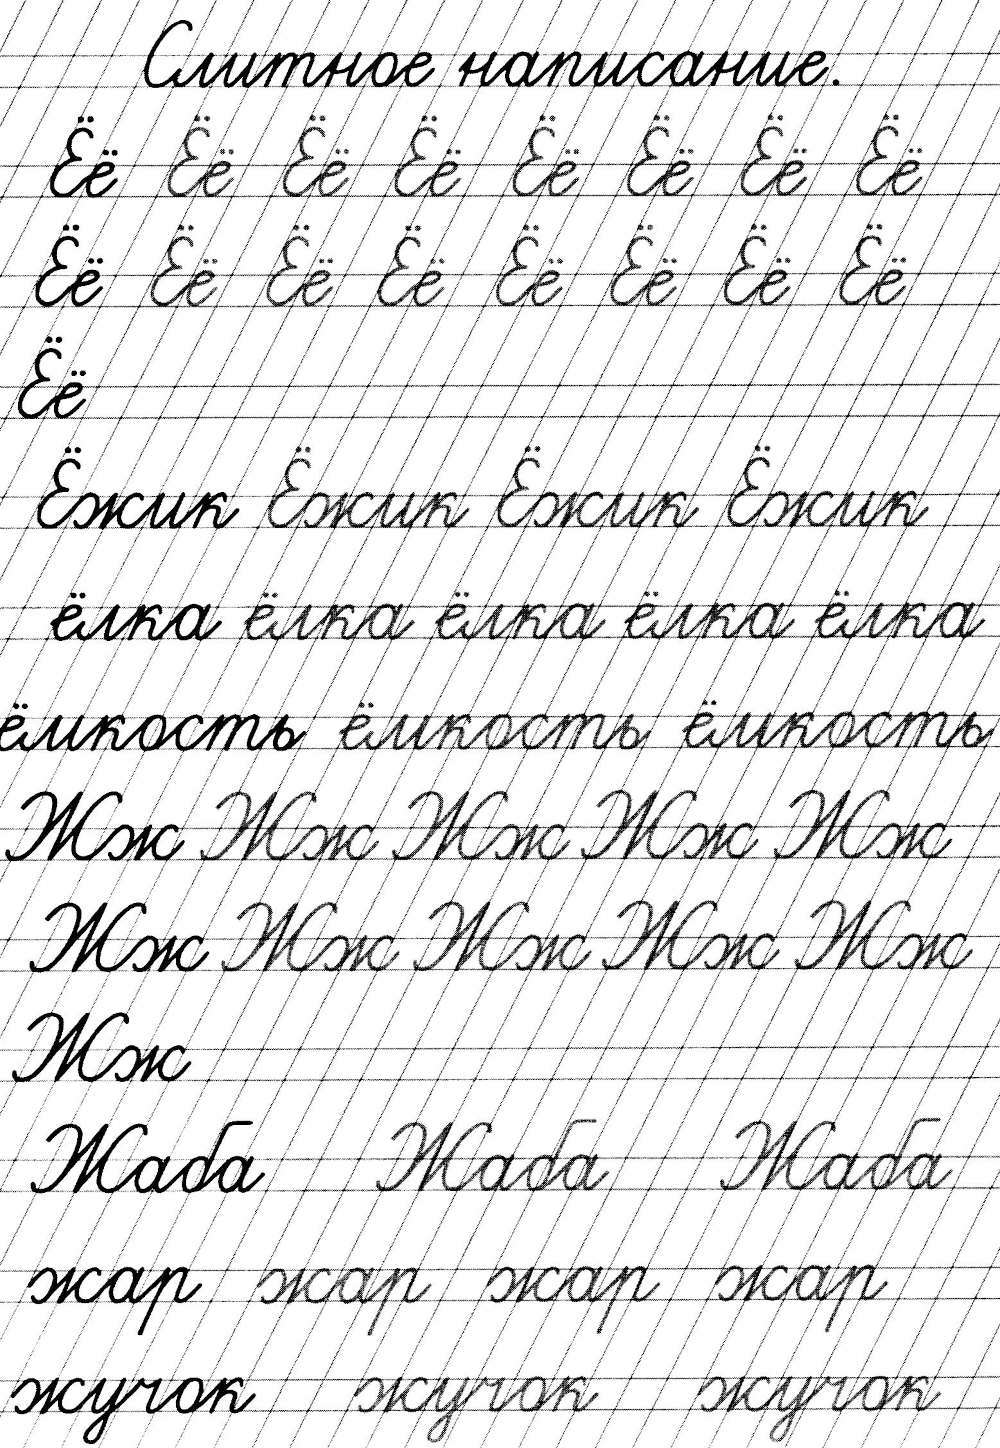 Слитное написание.
Ёё Ёё Ёё Ёё Ёё Ёё Ёё Ёё
Ёё Ёё Ёё Ёё Ёё Ёё Ёё Ёё
Ёё
Ёжик Ёжик Ёжик Ёжик
ёлка ёлка ёлка ёлка ёлка
ёмкость ёмкость ёмкость
Жж Жж Жж Жж Жж
Жж Жж Жж Жж Жж
Жж
Жаба Жаба Жаба
жар жар жар жар
жучок жучок жучок